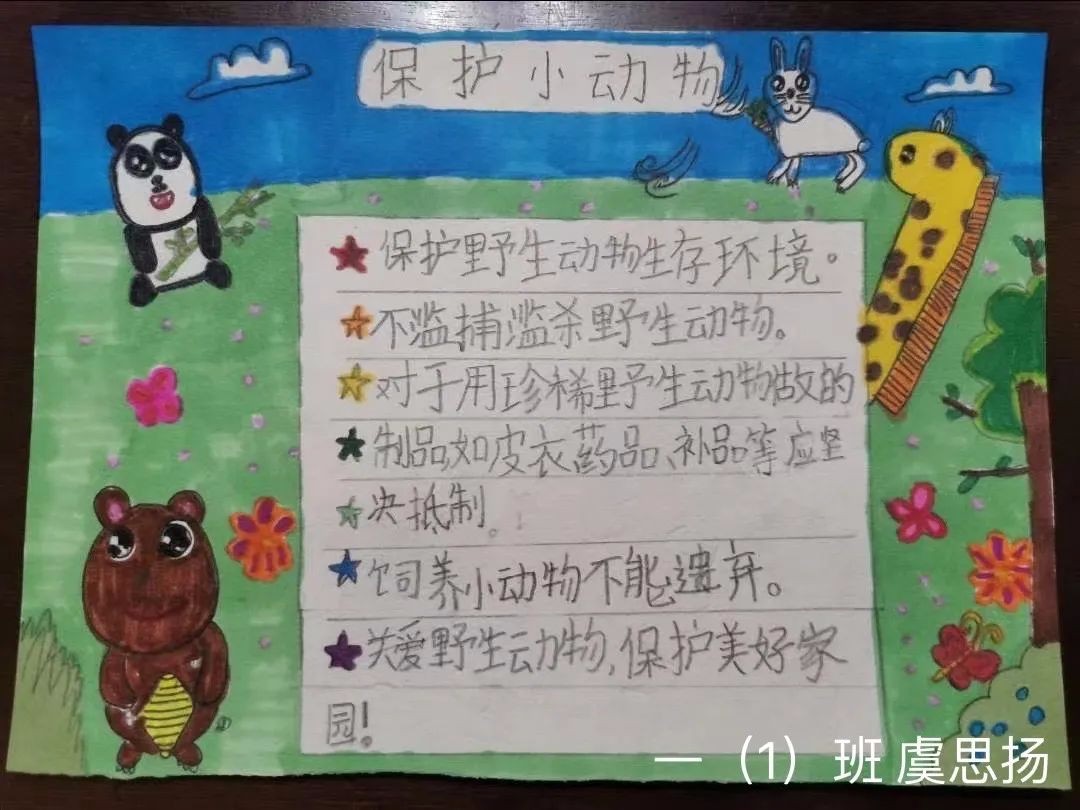 保护小动物
保护野生动物生存环境。
不滥捕滥杀野生动物。
对于用珍稀野生动物做的
制品,如皮衣药品、补品等应坚
决抵制。
饲养小动物不能遗弃。
关爱野生动物,保护美好家
园!
一（1）班 虞思扬